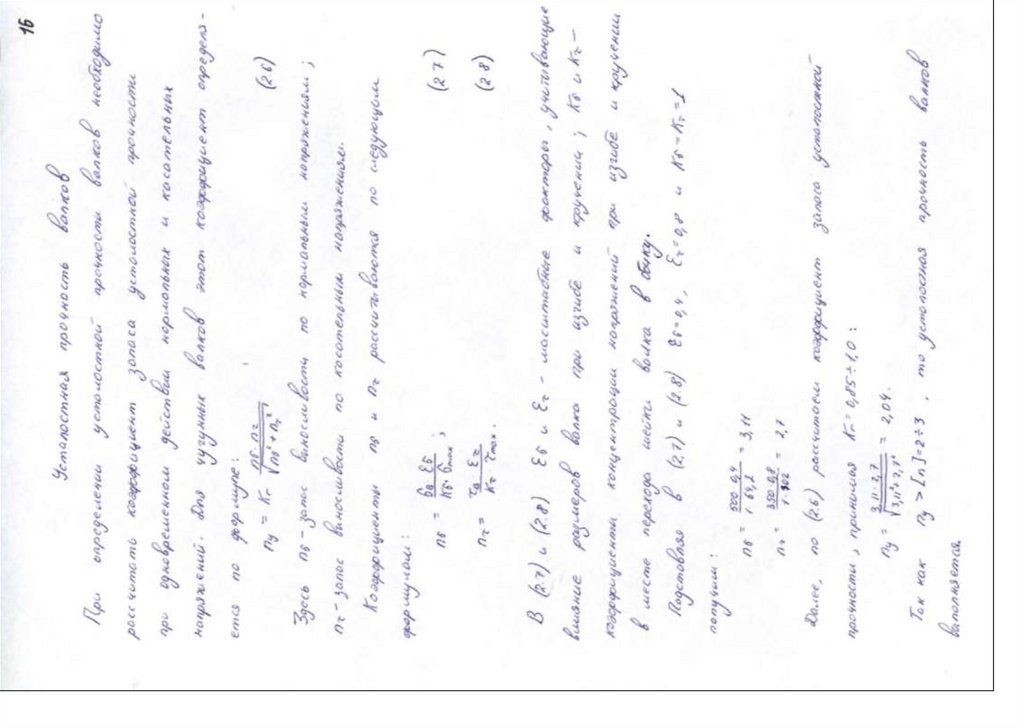 16
Усталостная прочность валков
При определении усталостной прочности валков необходимо
рассчитать коэффициент запаса усталостной прочности
при одновременном действии нормальных и касательных
напряжений. Для чугунных валков этот коэффициент определя-
ется по формуле:
nу = Kr nσ·nτ / √(nσ² + nτ²) (2.6)
Здесь nσ - запас выносливости по нормальным напряжениям;
nτ - запас выносливости по касательным напряжениям.
Коэффициенты nσ и nτ рассчитываются по следующим
формулам:
nσ = σв·εσ / Kσ·σmax ; (2.7)
nτ = τв·ετ / Kτ·τmax . (2.8)
В (2.7) и (2.8) εσ и ετ - масштабные факторы, учитывающие
влияние размеров валка при изгибе и кручении; Kσ и Kτ -
коэффициенты концентрации напряжений при изгибе и кручении
в месте перехода шейки валка в бочку.
Подставляя в (2.7) и (2.8) εσ=0,4, ετ=0,8 и Kσ=Kτ=1
получим:
nσ = 500·0,4 / 1·64,2 = 3,11
nτ = 350·0,8 / 1· = 2,7
Далее, по (2.6) рассчитаем коэффициент запаса усталостной
прочности, принимая K=0,85÷1,0:
nу = 3,11·2,7 / √(3,11²+2,7²) = 2,04.
Так как nу > [n]=2÷3, то усталостная прочность валков
выполняется.